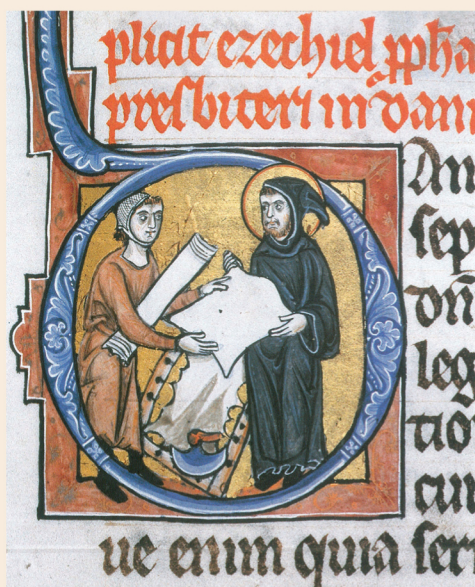 plicit ezechiel ppha
presbiteri in dani
An
sep
dñi
leg
tio
cur
ue enim quia ser